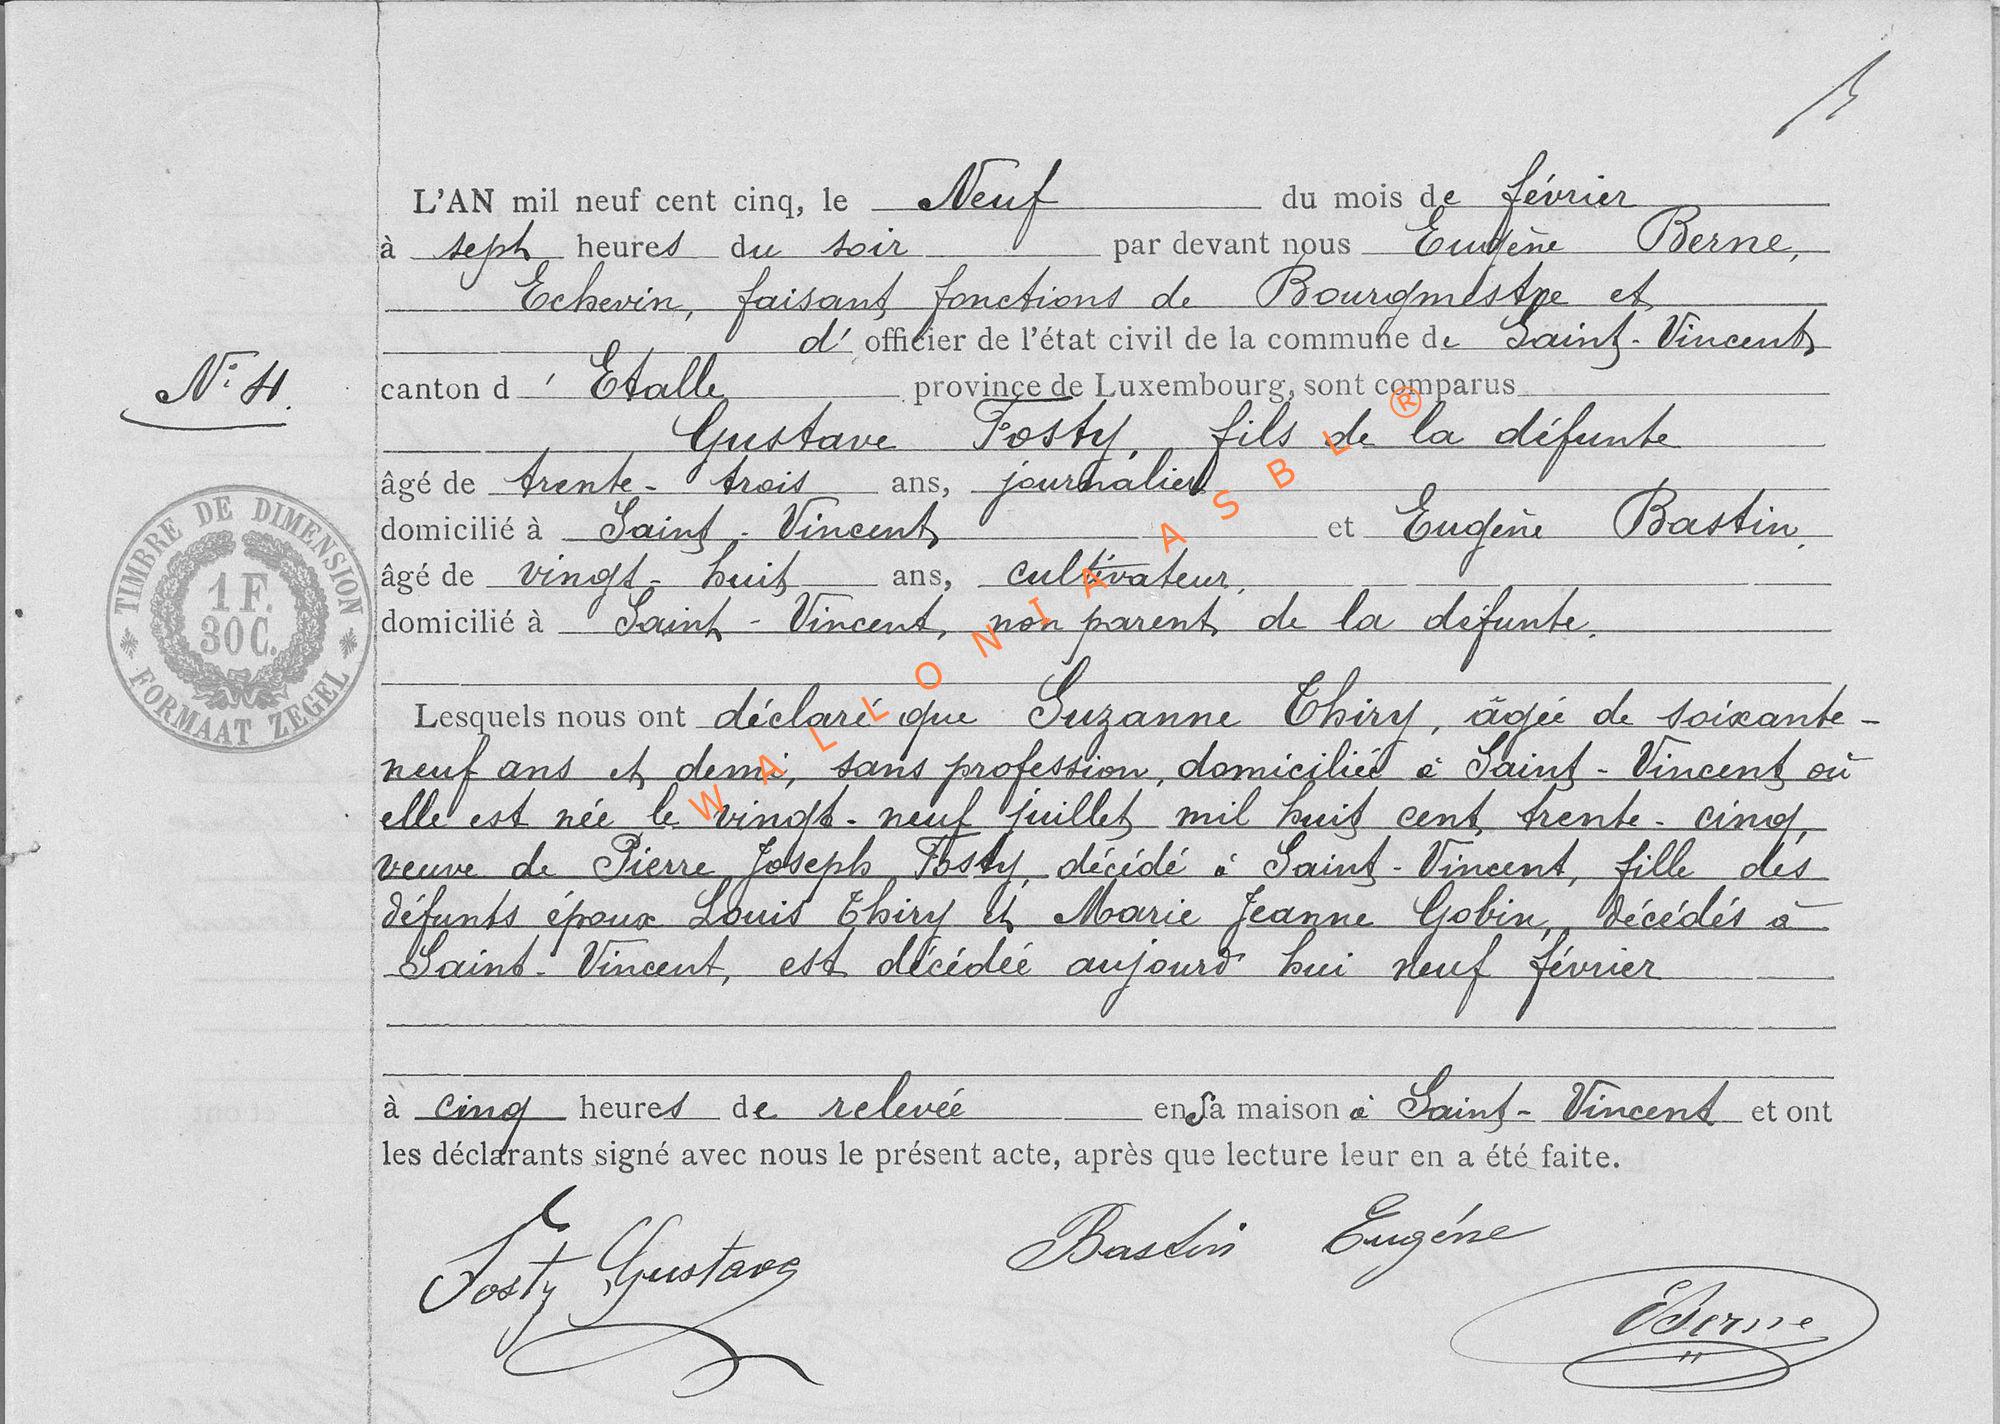 L'AN mil neuf cent cinq, le Neuf du mois de février
à sept heures du soir par devant nous Eugène Berne,
Echevin, faisant fonctions de Bourgmestre et
d' officier de l'état civil de la commune de Saint-Vincent
N° 4.
canton d'Etalle province de Luxembourg, sont comparus
Gustave Fosty, fils de la défunte
âgé de trente-trois ans, journalier
domicilié à Saint-Vincent et Eugène Bastin,
âgé de vingt-huit ans, cultivateur,
domicilié à Saint-Vincent, non parent de la défunte.
TIMBRE DE DIMENSION
1 F.
30 C.
FORMAAT ZEGEL
Lesquels nous ont déclaré que Suzanne Thiry, âgée de soixante-
neuf ans et demi, sans profession, domiciliée à Saint-Vincent où
elle est née le vingt-neuf juillet mil huit cent trente-cinq,
veuve de Pierre Joseph Fosty, décédé à Saint-Vincent, fille des
défunts époux Louis Thiry et Marie Jeanne Gobin, décédés à
Saint-Vincent, est décédée aujourd'hui neuf février
à cinq heures de relevée en sa maison à Saint-Vincent et ont
les déclarants signé avec nous le présent acte, après que lecture leur en a été faite.
Fosty Gustave Bastin Eugéne
EBerne
WALLONIA ASBL ®